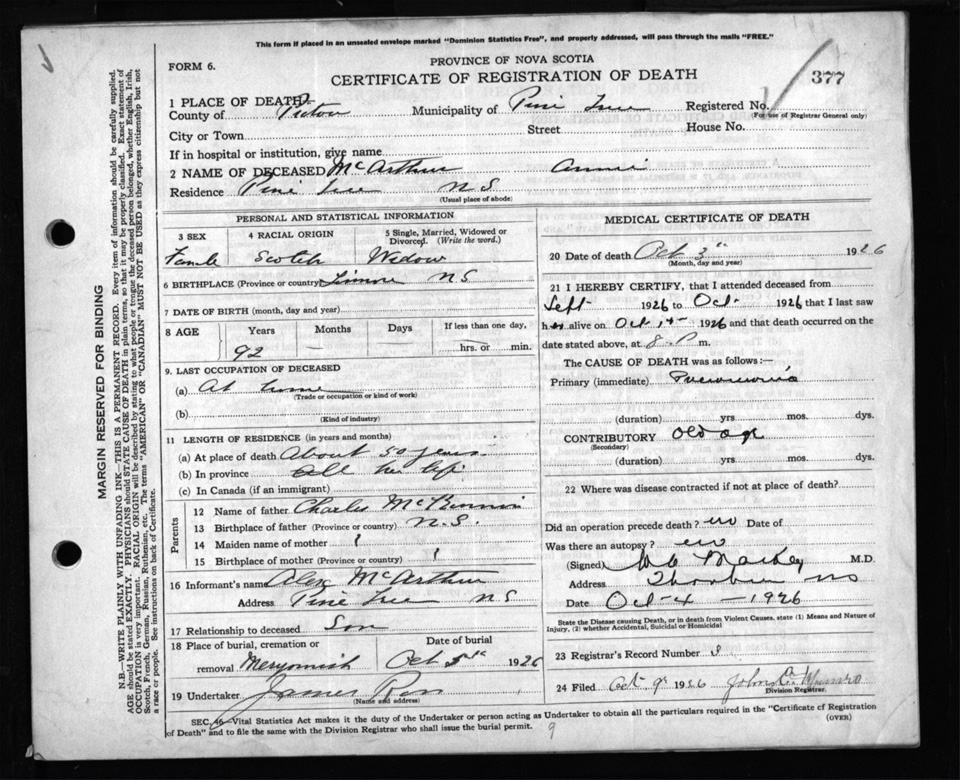 This form if placed in an unsealed envelope marked "Dominion Statistics Free", and properly addressed, will pass through the mails "FREE."
FORM 6.
PROVINCE OF NOVA SCOTIA
CERTIFICATE OF REGISTRATION OF DEATH
377
1 PLACE OF DEATH
County of Pictou Municipality of Pine Tree Registered No.
(For use of Registrar General only)
City or Town Street House No.
If in hospital or institution, give name
2 NAME OF DECEASED McArthur Annie
Residence Pine Tree N S
(Usual place of abode)
PERSONAL AND STATISTICAL INFORMATION
3 SEX 4 RACIAL ORIGIN 5 Single, Married, Widowed or Divorced. (Write the word.)
Famle Scotch Widow
6 BIRTHPLACE (Province or country) N S
7 DATE OF BIRTH (month, day and year)
8 AGE Years Months Days If less than one day,
92 — — hrs. or min.
9. LAST OCCUPATION OF DECEASED
(a) At home
(Trade or occupation or kind of work)
(b)
(Kind of industry)
11 LENGTH OF RESIDENCE (in years and months)
(a) At place of death About 50 years
(b) In province All her life
(c) In Canada (if an immigrant)
Parents
12 Name of father Charles
13 Birthplace of father (Province or country) N.S.
14 Maiden name of mother
15 Birthplace of mother (Province or country)
16 Informant's name Alex McArthur
Address Pine Tree N S
17 Relationship to deceased Son
18 Place of burial, cremation or removal Merigomish
Date of burial Oct 5th 1926
19 Undertaker James Ross
(Name and address)
MEDICAL CERTIFICATE OF DEATH
20 Date of death Oct 3" 1926
(Month, day and year)
21 I HEREBY CERTIFY, that I attended deceased from
Sept 1926 to Oct. 1926 that I last saw
her alive on Oct 1st 1926 and that death occurred on the
date stated above, at 8-P m.
The CAUSE OF DEATH was as follows:—
Primary (immediate) Pneumonia
(duration) yrs. mos. dys.
CONTRIBUTORY Old age
(Secondary)
(duration) yrs. mos. dys.
22 Where was disease contracted if not at place of death?
Did an operation precede death? no Date of
Was there an autopsy? no
(Signed) M.D.
Address Thorburn NS
Date Oct-4-1926
State the Disease causing Death, or in death from Violent Causes, state (1) Means and Nature of
Injury, (2) whether Accidental, Suicidal or Homicidal
23 Registrar's Record Number
24 Filed Oct 9th 1926 John
Division Registrar.
SEC. 46—Vital Statistics Act makes it the duty of the Undertaker or person acting as Undertaker to obtain all the particulars required in the "Certificate of Registration
of Death" and to file the same with the Division Registrar who shall issue the burial permit.
(OVER)
9
MARGIN RESERVED FOR BINDING
N.B.—WRITE PLAINLY WITH UNFADING INK—THIS IS A PERMANENT RECORD. Every item of information should be carefully supplied.
AGE should be stated EXACTLY. PHYSICIANS should STATE CAUSE OF DEATH in plain terms, so that it may be properly classified. Exact statement of
OCCUPATION is very important. RACIAL ORIGIN will be described by stating to what people or tongue the deceased person belonged, whether English, Irish,
Scotch, French, German, Russian, Ruthenian, etc. The terms "AMERICAN" or "CANADIAN" MUST NOT BE USED as they express citizenship but not
a race or people. See instructions on back of Certificate.